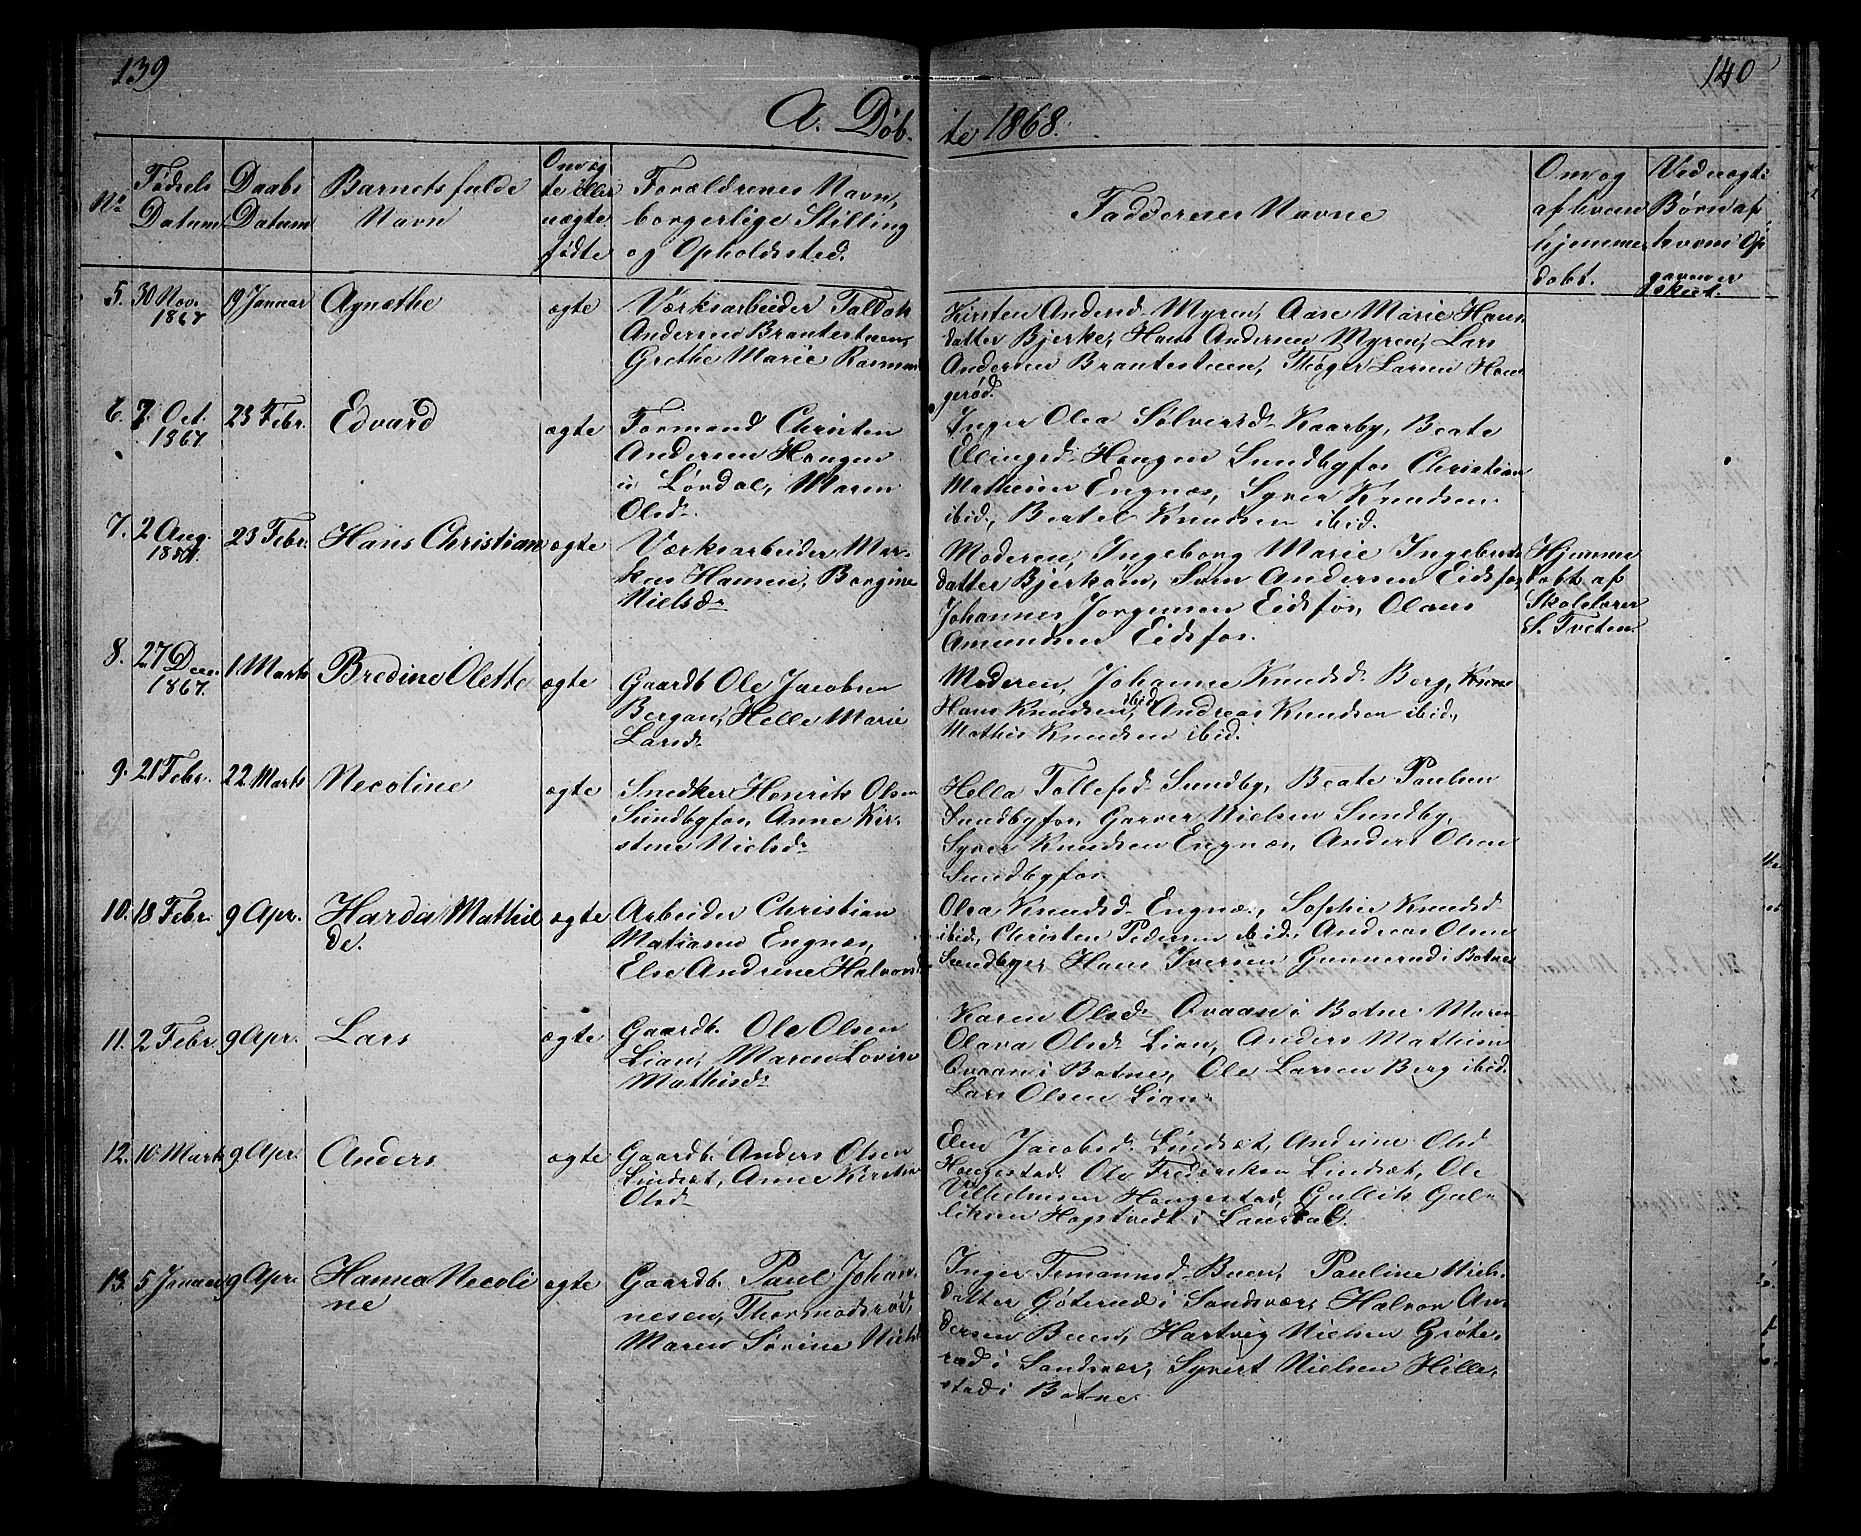 139
140
A. Døb-
te 1868.
No
Fødsels Datum
Daabs Datum
Barnets fulde Navn
Om æg-
te eller
uægte
fødte
Forældrenes Navn,
borgerlige Stilling
og Opholdssted.
Faddernes Navne
Om og
af hvem
hjemme-
døbt.
Ved uægte
Børn af
hvem Op
gaven er
skeet.
5. 30 Nov. 1867 19 Januar Agnethe ægte
Værksarbeider Taldak
Andersen Brantesteen,
Grethe Marie Rasmus
Kirsten Andersd. Myren, Aase Marie Hans
datter Bjerke, Hans Andersen Myren, Lars
Andersen Brantesteen, Thøger Larsen Hon
gerød.
6. 7. Oct. 1867 23 Febr. Edvard ægte
Formand Christen
Andersen Haugen
i Lørdal, Maren
Olsd.
Inger Olea Sølversd. Kaarby, Beate
Ellingsd. Haugen Sundbyfos Christian
Mathisen Engnæs, Syver Knudsen
ibid, Bertel Knudsen ibid.
7. 2 Aug. 23 Febr. Hans Christian ægte
Værksarbeider Mar-
kus Hansen, Borgine
Nielsd.
Moderen, Ingeborg Marie Ingebrets
datter Bjerkøen, Sven Andersen Eidsfos,
Johannes Jørgensen Eidsfos, Olaus
Amundsen Eidsfos.
Hjemme
døbt af
Skolelærer
S. Tveten.
8. 27 Dec. 1867. 1. Marts Bredine Olette ægte
Gaardb. Ole Jacobsen
Bergan, Helle Marie
Larsd.
Moderen, Johanne Knudsd. Berg,
Hans Knudsen ibid, Andreas Knudsen ibid,
Mathis Knudsen ibid.
9. 21 Febr. 22 Marts Necoline ægte
Snedker Henrik Olsen
Sundbyfos, Anne Kir-
stine Nielsd.
Hella Tollefsd. Sundby, Beate Paulsen
Sundbyfos, Garver Nielsen Sundby,
Syver Knudsen Engnæs, Anders Olsen
Sundbyfos.
10. 18 Febr. 9 Apr. Harda Mathil
de. ægte
Arbeider Christian
Matiasen Engnæs,
Else Andrine Halvors
Olea Knudsd. Engnæs, Sophie Knudsd.
ibid, Christen Pedersen ibid, Andreas Olsen
Sundbye, Hans Iversen Gunnerud i Botne
11. 2 Febr 9 Apr. Lars ægte
Gaardb. Ole Olsen
Lian, Maren Lovise
Mathisd.
Karen Olsd. Ovaan i Botne. Maren
Olava Olsd. Lian, Anders Mathisen
Ovaan i Botne, Ole Larsen Berg ibid.
Lars Olsen Lian.
12. 10 Marts 9 Apr. Anders ægte
Gaardb. Anders Olsen
Lindsæt, Anne Kirstin
Olsd.
Elen Jacobsd. Lindsæt, Andrine Olsd.
Haugestad. Ole Frederiksen Lindsæt, Ole
Vilhelmsen Haugestad, Gullik Gul-
liksen Hagstvedt i Laurdal.
13. 5 Januar 9 Apr. Hanna Necoli
ne ægte
Gaardb. Paul Johan-
nesen, Thormodsrød,
Maren Sørine Niels
Inger Tomannsd. Buen, Pauline Niels
datter Gøterud i Sandsvær, Halvor An
dersen Buen, Hartvig Nielsen Grøte-
rud i Sandsvær, Syvert Nielsen Hille-
stad i Botne.